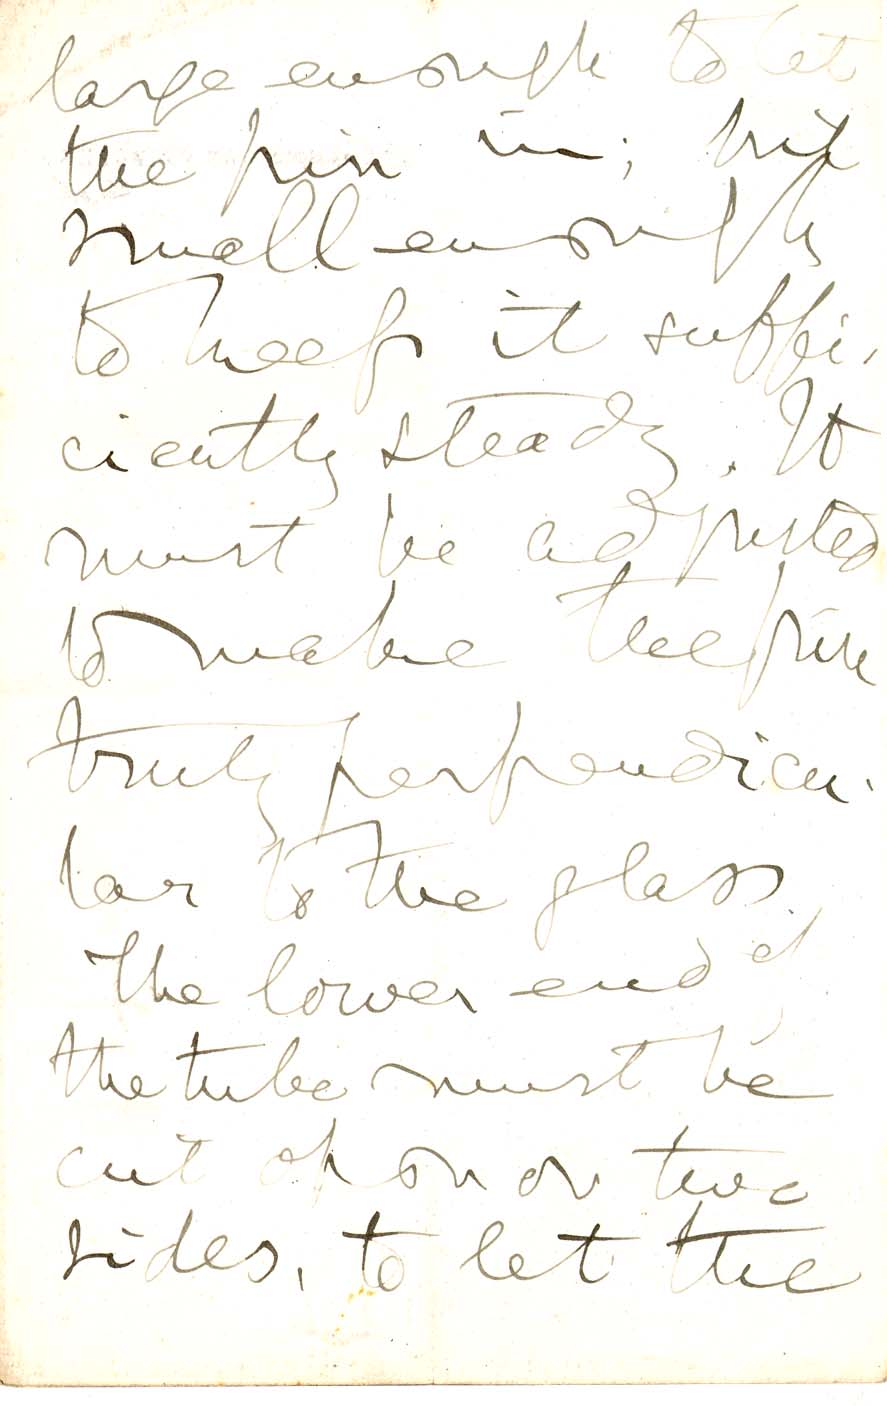 large enough to let
the pin in; but
small enough
to keep it suffi-
ciently steady. It
must be adjusted
to make the pin
truly perpendicu-
lar to the glass
The lower end of
the tube must be
cut open on two
sides, to let the